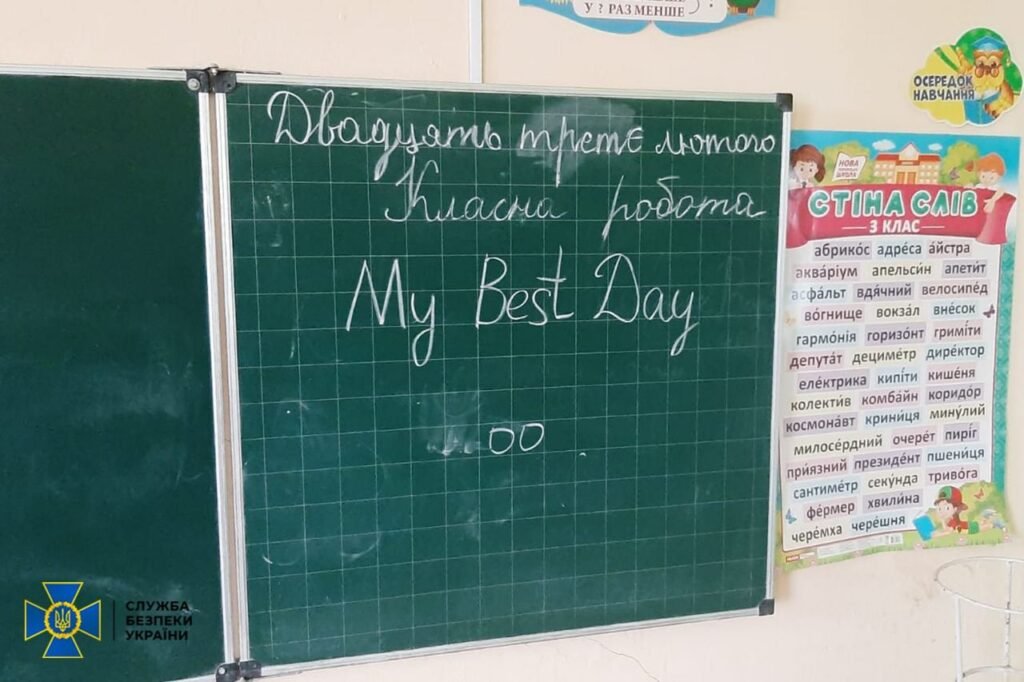 У ? РАЗ МЕНШЕ
ОСЕРЕДОК
НАВЧАННЯ
Двадцять третє лютого
Класна робота
My Best Day
oo
НОВА
СТІНА СЛІВ
3 КЛАС
абрико́с адре́са а́йстра
аква́ріум апельси́н апети́т
асфа́льт вдя́чний велосипе́д
во́гнище вокза́л вне́сок
гармо́нія горизо́нт гримі́ти
депута́т дециме́тр дире́ктор
еле́ктрика кипі́ти кише́ня
колекти́в комба́йн коридо́р
космона́вт крини́ця мину́лий
милосе́рдний очере́т пирі́г
при́язний президе́нт пшени́ця
сантиме́тр секу́нда триво́га
фе́рмер хвили́на
чере́мха чере́шня
СЛУЖБА
БЕЗПЕКИ
УКРАЇНИ